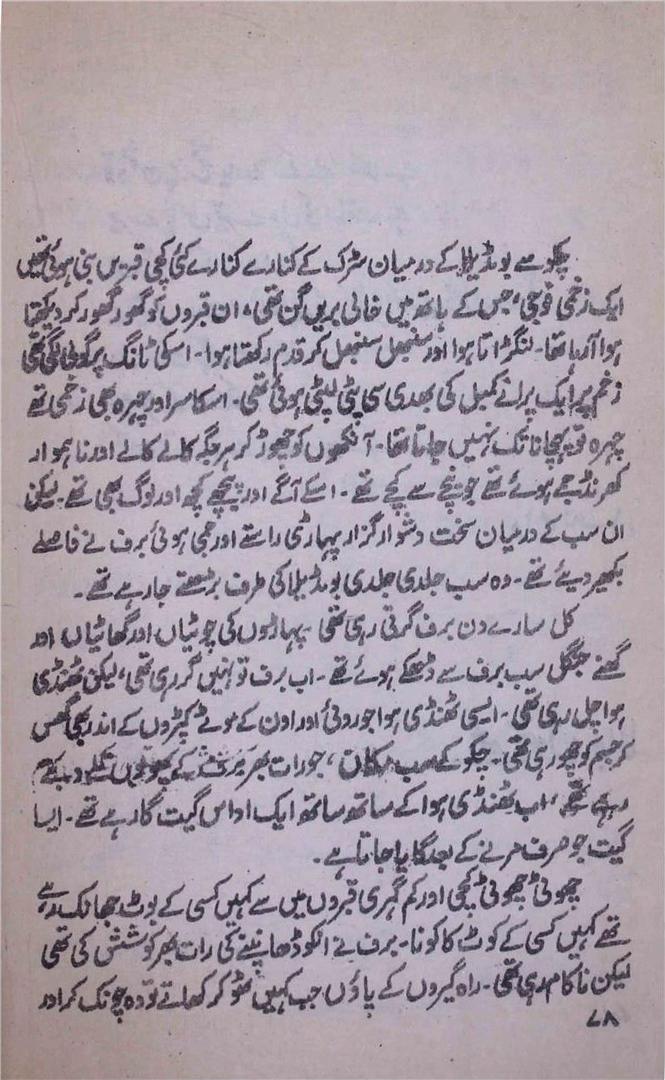 چکو سے بومڈیلا کے درمیان سڑک کے کنارے کنارے کئی کچی قبریں بنی ہوئی تھیں
ایک زخمی فوجی، جس کے ہاتھ میں خالی برین گن تھی، ان قبروں کو گھور گھور کر دیکھتا
ہوا آرہا تھا۔ لنگڑاتا ہوا اور سنبھل سنبھل کر قدم رکھتا ہوا۔ اسکی ٹانگ پر گولی لگی تھی
زخم پر ایک پرانے کمبل کی بھدی سی پٹی لپٹی ہوئی تھی۔ اسکا سر اور چہرہ بھی زخمی تھے
چہرہ تو پہچانا تک نہیں جاتا تھا۔ آنکھوں کو چھوڑ کر ہر جگہ کالے کالے اور ناہموار
کھرنڈ جمے ہوئے تھے جو نیچے سے کچے تھے۔ اسکے آگے اور پیچھے کچھ اور لوگ بھی تھے۔ لیکن
ان سب کے درمیان سخت دشوار گزار پہاڑی راستے اور جمی ہوئی برف نے فاصلے
بکھیر دیئے تھے۔ وہ سب جلدی جلدی بومڈیلا کی طرف بڑھتے جارہے تھے۔
کل سارے دن برف گرتی رہی تھی پہاڑوں کی چوٹیاں اور گھاٹیاں اور
گھنے جنگل سب برف سے ڈھکے ہوئے تھے۔ اب برف تو نہیں گر رہی تھی، لیکن ٹھنڈی
ہوا چل رہی تھی۔ ایسی ٹھنڈی ہوا جو روئی اور اون کے موٹے کپڑوں کے اندر بھی گھس
کر جسم کو چھو رہی تھی۔ چکو کے سب مکان، جو رات بھر برف کے تلے دبے
رہے تھے، اب ٹھنڈی ہوا کے ساتھ ساتھ ایک اداس گیت گا رہے تھے۔ ایسا
گیت جو صرف مرنے کے بعد گایا جاتا ہے۔
چھوٹی چھوٹی کچی اور کم گہری قبروں میں سے کہیں کسی کے بوٹ جھانک رہے
تھے کہیں کسی کے کوٹ کا کونا۔ برف نے انکو ڈھانپنے کی رات بھر کوشش کی تھی
لیکن ناکام رہی تھی۔ راہ گیروں کے پاؤں جب کہیں ٹھوکر کھاتے تو وہ چونک کر اور
۷۸